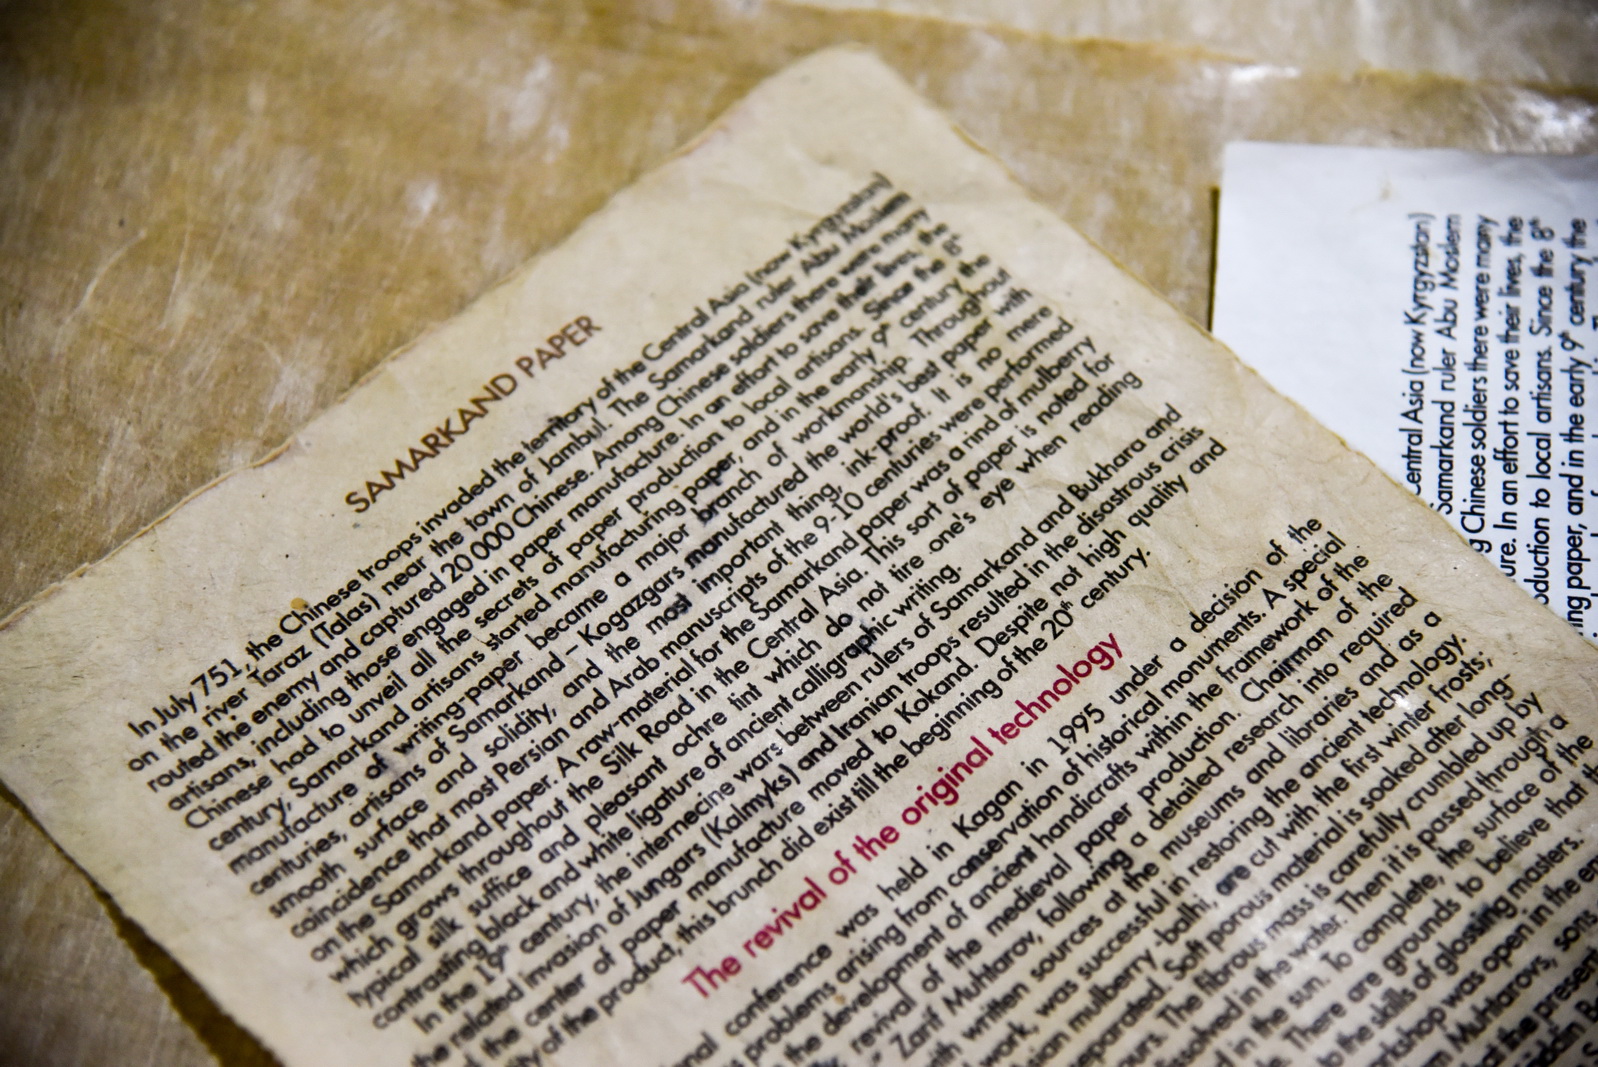 SAMARKAND PAPER
In July 751, the Chinese troops invaded the territory of the Central Asia (now Kyrgyzstan)
on the river Taraz (Talas) near the town of Jambul. The Samarkand ruler Abu Moslem
routed the enemy and captured 20 000 Chinese. Among Chinese soldiers there were many
artisans, including those engaged in paper manufacture. In an effort to save their lives, the
Chinese had to unveil all the secrets of paper production to local artisans. Since the 8th
century, Samarkand artisans started manufacturing paper, and in the early 9th century the
manufacture of writing-paper became a major branch of workmanship. Throughout
centuries, artisans of Samarkand – Kogazgars manufactured the world's best paper with
smooth surface and solidity, and the most important thing, ink-proof. It is no mere
coincidence that most Persian and Arab manuscripts of the 9-10 centuries were performed
on the Samarkand paper. A raw-material for the Samarkand paper was a rind of mulberry
which grows throughout the Silk Road in the Central Asia. This sort of paper is noted for
typical silk suffice and pleasant ochre tint which do not tire one's eye when reading
contrasting black and white ligature of ancient calligraphic writing.
In the 19th century, the internecine wars between rulers of Samarkand and Bukhara and
the related invasion of Jungars (Kalmyks) and Iranian troops resulted in the disastrous crisis
the center of paper manufacture moved to Kokand. Despite not high quality and
of the product, this brunch did exist till the beginning of the 20th century.
The revival of the original technology
conference was held in Kagan in 1995 under a decision of the
problems arising from conservation of historical monuments. A special
the development of ancient handicrafts within the framework of the
revival of the medieval paper production. Chairman of the
Zarif Muhtarov, following a detailed research into required
written sources at the museums and libraries and as a
work, was successful in restoring the ancient technology.
mulberry -balhi, are cut with the first winter frosts;
Soft porous material is soaked after long-
The fibrous mass is carefully crumbled up by
in the water. Then it is passed through a
in the sun. To complete, the surface of the
There are grounds to believe that
to the skills of glossing masters.
was open in the
Muhtarovs, sons
at the present
Central Asia (now Kyrgyzstan)
Samarkand ruler Abu Moslem
Chinese soldiers there were many
In an effort to save their lives, the
to local artisans. Since the 8th
paper, and in the early 9th century the